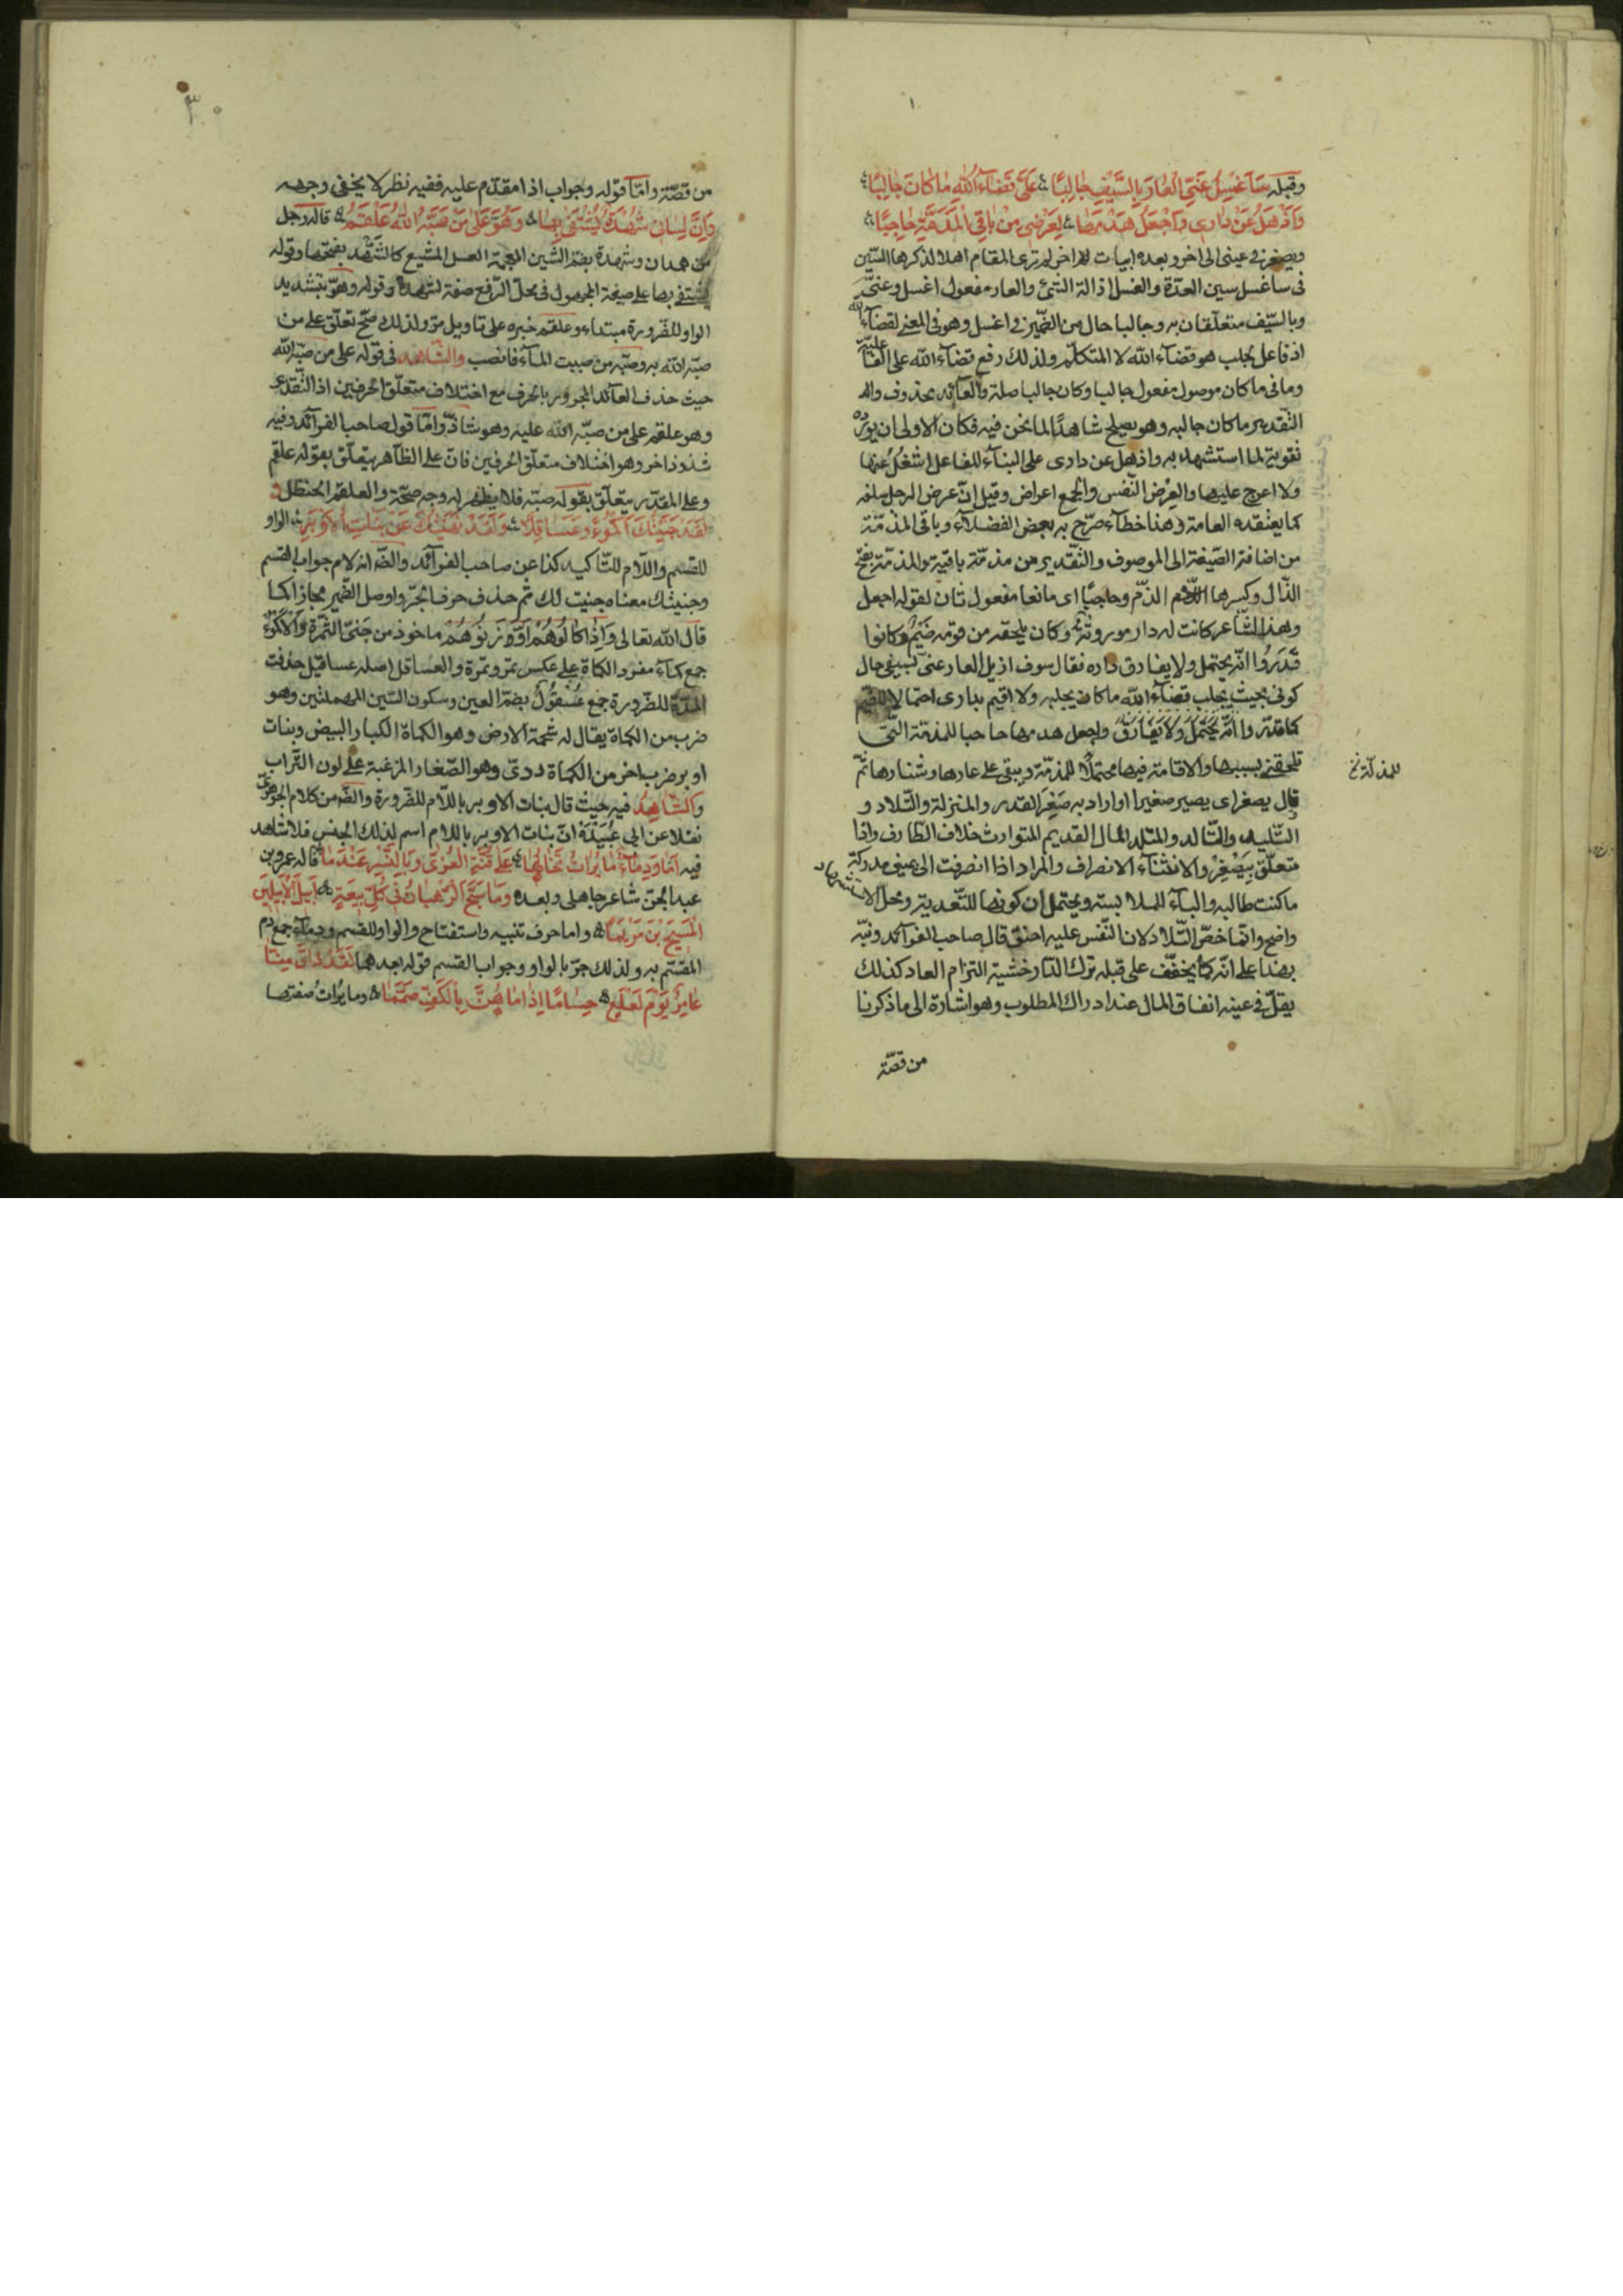 وقبله سَاَغْسِلُ عَنِّي الْعَارَ بِالسَّيْفِ جَالِبًا عَلَيَّ قَضَاءُ اللهِ مَا كَانَ جَالِبًا
وَاَذْهَلُ عَنْ دَارِي وَاَجْعَلُ هَدْمَهَا لِعِرْضِي مِنْ بَاقِي الْمَذَمَّةِ حَاجِبًا
ويصغر في عيني الى اخر وبعده ابيات اخر لم تر المقام اهلا لذكرها السين
في ساغسل سين العدة والغسل ازالة الشئ والعار مفعول اغسل وعنّي
وبالسّيف متعلّقان به وجالبا حال من الضّمير في اغسل وهو في المعنى لقضاء الله
اذ فاعل يجلب هو قضاء الله لا المتكلّم ولذلك رفع قضاء الله على الفاعليّة
وما في ما كان موصول مفعول جالبا وكان جالبا صلة والعائد محذوف
التّقدير ما كان جالبه وهو يصلح شاهدًا لما نحن فيه فكان الاولى ان يورده
تقوية لما استشهد به واذهل عن داري على البناء للفاعل اشغل عنها
ولا اعرج عليها والعِرض النّفس والجمع اعراض وقيل انّ عرض الرجل سلفه
كما يعتقده العامة و هذا خطآء صرّح به بعض الفضلاء وباقي المذمّة
من اضافة الصّفة الى الموصوف والتّقدير من مذمّة باقية والمذمّة بفتح
الذّال وكسرها الذّم وحاجبًا اى مانعا مفعول ثان لقوله اجعل
وهذا الشّاعر كانت له دار موروثة وكان يلحقه من قومه ضَيْمٌ وكانوا
قَدَرُوا انّه يحتمل ولا يفارق داره فقال سوف ازيل العار عنّي بسيفي حال
كوني بحيث يجلب قضاء الله ما كان يجلبه ولا اقيم بداري احتمالا للضّيم
كما قدّروا انّه يَحْتَمِلُ ولا يُفَارِقُ واجعل هدمها حاجبا للمذمّة الّتي
تلحقني بسببها والاقامة فيها محتملًا للمذمّة ويبقى على عارها وشنارها ثمّ
للمذلّة خ
قال يصغر اى يصير صغيرا او اراد به صَغِرَ القدر والمنزلة والتّلاد و
التّليد والتّالد والمتلد المال القديم المتوارث خلاف الطّارف واذا
متعلّق بِيَصْغُرُ والانثناء الانصراف والمراد اذا انصرفت الى عيني مدركة
ما كنت طالبه والبآء للملابسة ويحتمل ان كونها للتّعدية ومحلّ الاستشهاد
واضح وانّما خصّ التّلاد لان النّفس عليه احنق قال صاحب الفرآئد ونبّه
بهذا على انّه كما يخفّف على قبله ترك الدّار خشية التزام العار كذلك
يقلّ في عينه انفاق المال عند ادراك المطلوب وهو اشارة الى ما ذكرنا
من قصّة
من قصّة وامّا قوله وجواب اذا مقدّم عليه ففيه نظر لا يخفى وجهه
وَاِنَّ لِسَانِي شُهْدَةٌ يُشْتَفَى بِهَا وَهُوَّ عَلَى مَنْ صَبَّهُ اللهُ عَلْقَمُ قاله رجل
من همدان وشهدة بضمّ الشين المعجمة العسل المشمع كالشّهد بفتحها وقوله
يشتفى بها على صيغة المجهول في محلّ الرّفع صفة لشهدة وقوله وهوّ بتشديد
الواو للضّرورة مبتداء وعلقم خبره على تاويل مرّ ولذلك صحّ تعلّق على من
صبّه الله به وصبّه من صببت المآء فانصب والشّاهد في قوله على من صبّه الله
حيث حذف العآئد المجرور بالحرف مع اختلاف متعلّق الحرفين اذ التّقدير
وهو علقم على من صبّه الله عليه وهو شاذّ وامّا قول صاحب الفرآئد وفيه
شذوذ اخر وهو اختلاف متعلّق الحرفين فانّ على الظّاهر يتعلّق بقوله علقم
وعلى المقدّر يتعلّق بقوله صبّه فلا يظهر له وجه صحّة والعلقم الحنظل
لَقَدْ جَنَيْتُكَ اَكْمُؤًا وَعَسَاقِلًا وَلَقَدْ نَهَيْتُكَ عَنْ بَنَاتِ الْاَوْبَرِ الواو
للقسم واللّام للتّاكيد كذا عن صاحب الفرآئد والظّ انّه لام جواب القسم
وجنيتك معناه جنيت لك ثمّ حذف حرف الجرّ واوصل الضّمير مجازا كما
قال الله تعالى وَاِذَا كَالُوهُمْ اَوْ وَزَنُوهُمْ ماخوذ من جَنَى الثّمرة والاكمؤ
جمع كمآء مفرد الكمأة على عكس تمر وتمرة والعساقل اصله عساقيل حذفت
المدّة للضّرورة جمع عُسْقُولٌ بضمّ العين وسكون السّين المهملتين وهو
ضرب من الكمأة يقال له شحمة الارض وهو الكمأة الكبار البيض وبنات
اوبر ضرب اخر من الكمأة ردىّ وهو الصّغار المزغبة على لون التّراب
والشّاهد فيه حيث قال بنات الاوبر باللّام للضّرورة والظّ من كلام الجوهريّ
نقلا عن ابي عُبَيْدَة انّ بنات الاوبر باللام اسم لذلك الجنس فلا شاهد
فيه اَمَا وَدِمَاءٍ مَائِرَاتٍ تَخَالُهَا عَلَى قُنَّةِ الْعُزَّى وَبِالنَّسْرِ عَنْدَمَا قاله عمرو بن
عبد الجنّ شاعر جاهلي وبعده وَمَا سَبَّحَ الرُّهْبَانُ فِي كُلِّ بِيعَةٍ اَبِيلَ الْاَبِيلِينَ
الْمَسِيحَ بْنَ مَرْيَمَا واما حرف تنبيه واستفتاح والواو للقسم ودمآء جمع دم
المقسم به ولذلك جرّ بالواو وجواب القسم قوله بعدهما لَقَدْ ذَاقَ مِنَّا
عَامِرٌ يَوْمَ لَعْلَعٍ حُسَامًا اِذَا مَا هُزَّ بِالْكَفِّ صَمَّمَا ومائرات صفتها